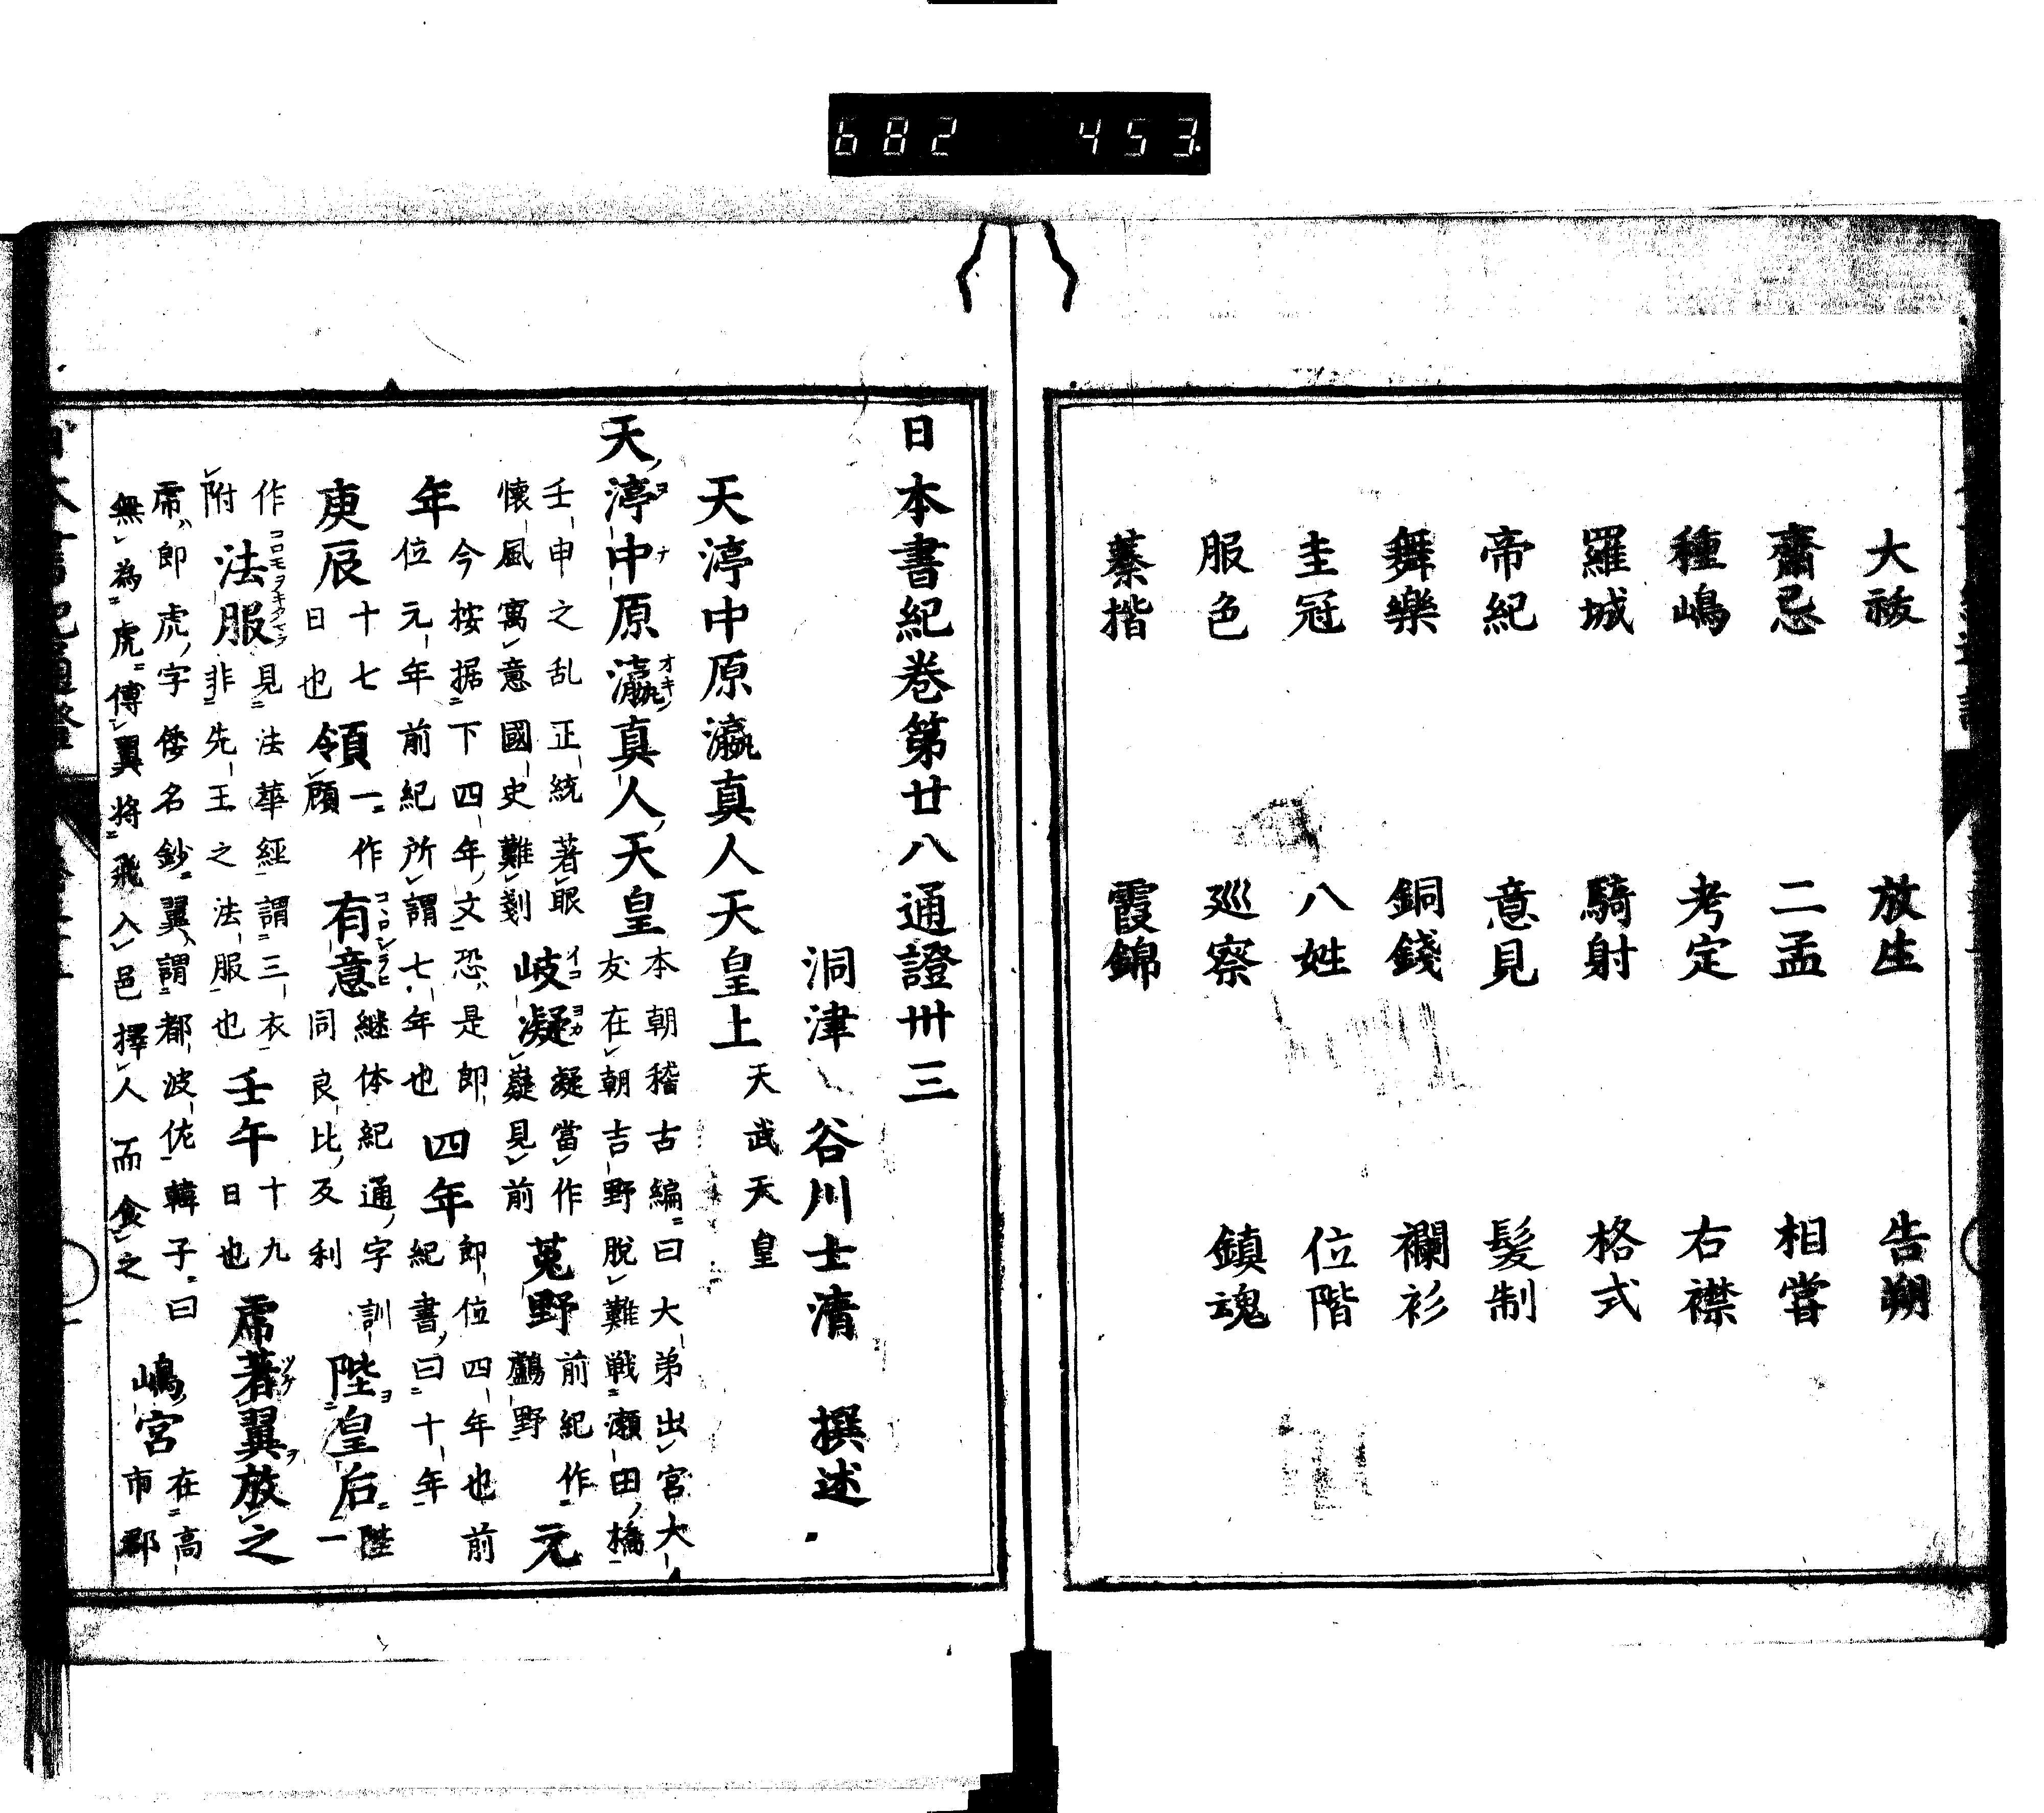 682 453
大祓 放生 告朔
齋忌 二孟 相甞
種嶋 考定 右襟
羅城 騎射 格式
帝紀 意見 髮制
舞樂 銅錢 襴衫
圭冠 八姓 位階
服色 巡察 鎮魂
蓁揩 霞錦
日本書紀巻第廿八通證卅三
洞津 谷川士清 撰述
天渟中原瀛真人天皇上 天武天皇
天渟中原瀛真人天皇 本朝稽古編曰大弟出宮大友在朝吉野脱難戦瀬田橋
壬申之乱正統著眼懐風寓意國史難剗 岐凝 凝當作嶷見前 菟野 前紀作鸕野 元
年 今按据下四年文恐是即位元年前紀所謂七年也 四年 即位四年也前紀書曰十年
庚辰 十七日也 領 一作頋 有意 継体紀通字訓同良比及利 陞皇后 陞一
作附 法服 見法華經謂三衣非先王之法服也 壬午 十九日也 乕著翼放之
乕即虎字倭名鈔翼謂都波佐韓子曰無為虎傳翼將飛入邑擇人而食之 嶋宮 在高市郡